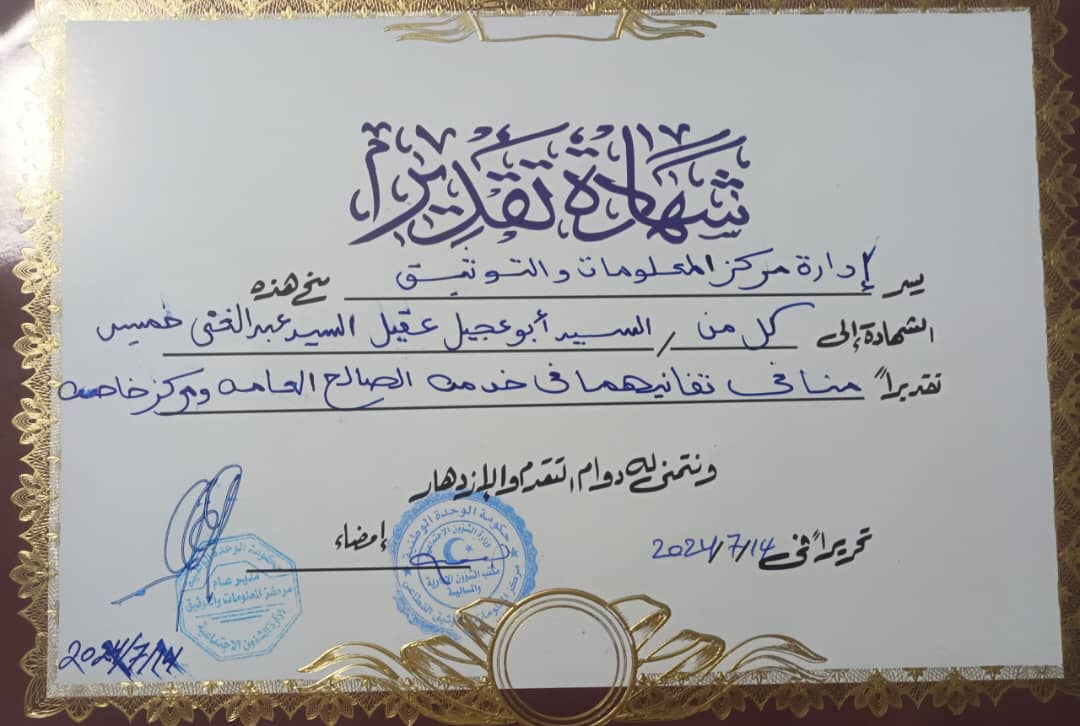 شهادة تقدير
يسر إدارة مركز المعلومات والتوثيق منح هذه
الشهادة إلى كل من / السيد أبو عجيل عقيل السيد عبد الغني خميس
تقديراً منا في تفانيهما في خدمة الصالح العامه ومركز خاصه
ونتمنى له دوام التقدم والإزدهار
تحريراً في 2024/7/14 إمضاء
حكومة الوحدة الوطنية
وزارة الشؤون الاجتماعية
مكتب الشؤون الإدارية
والمالية
مدير عام
مركز المعلومات والتوثيق
وزارة الشؤون الاجتماعية
2024/7/14